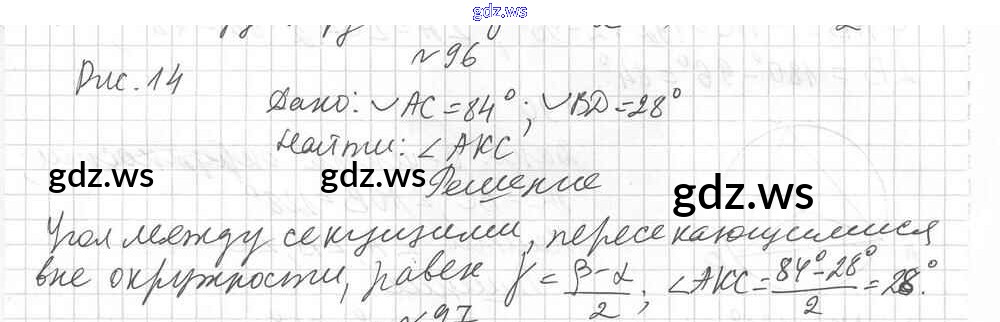 gdz.ws
№96
Рис. 14
Дано: ◡AC = 84°; ◡BD = 28°
Найти: ∠AKC
gdz.ws
gdz.ws
Решение
gdz.ws
Угол между секущими, пересекающимися
вне окружности, равен γ = (β-α)/2; ∠AKC = (84°-28°)/2 = 28°.
№97